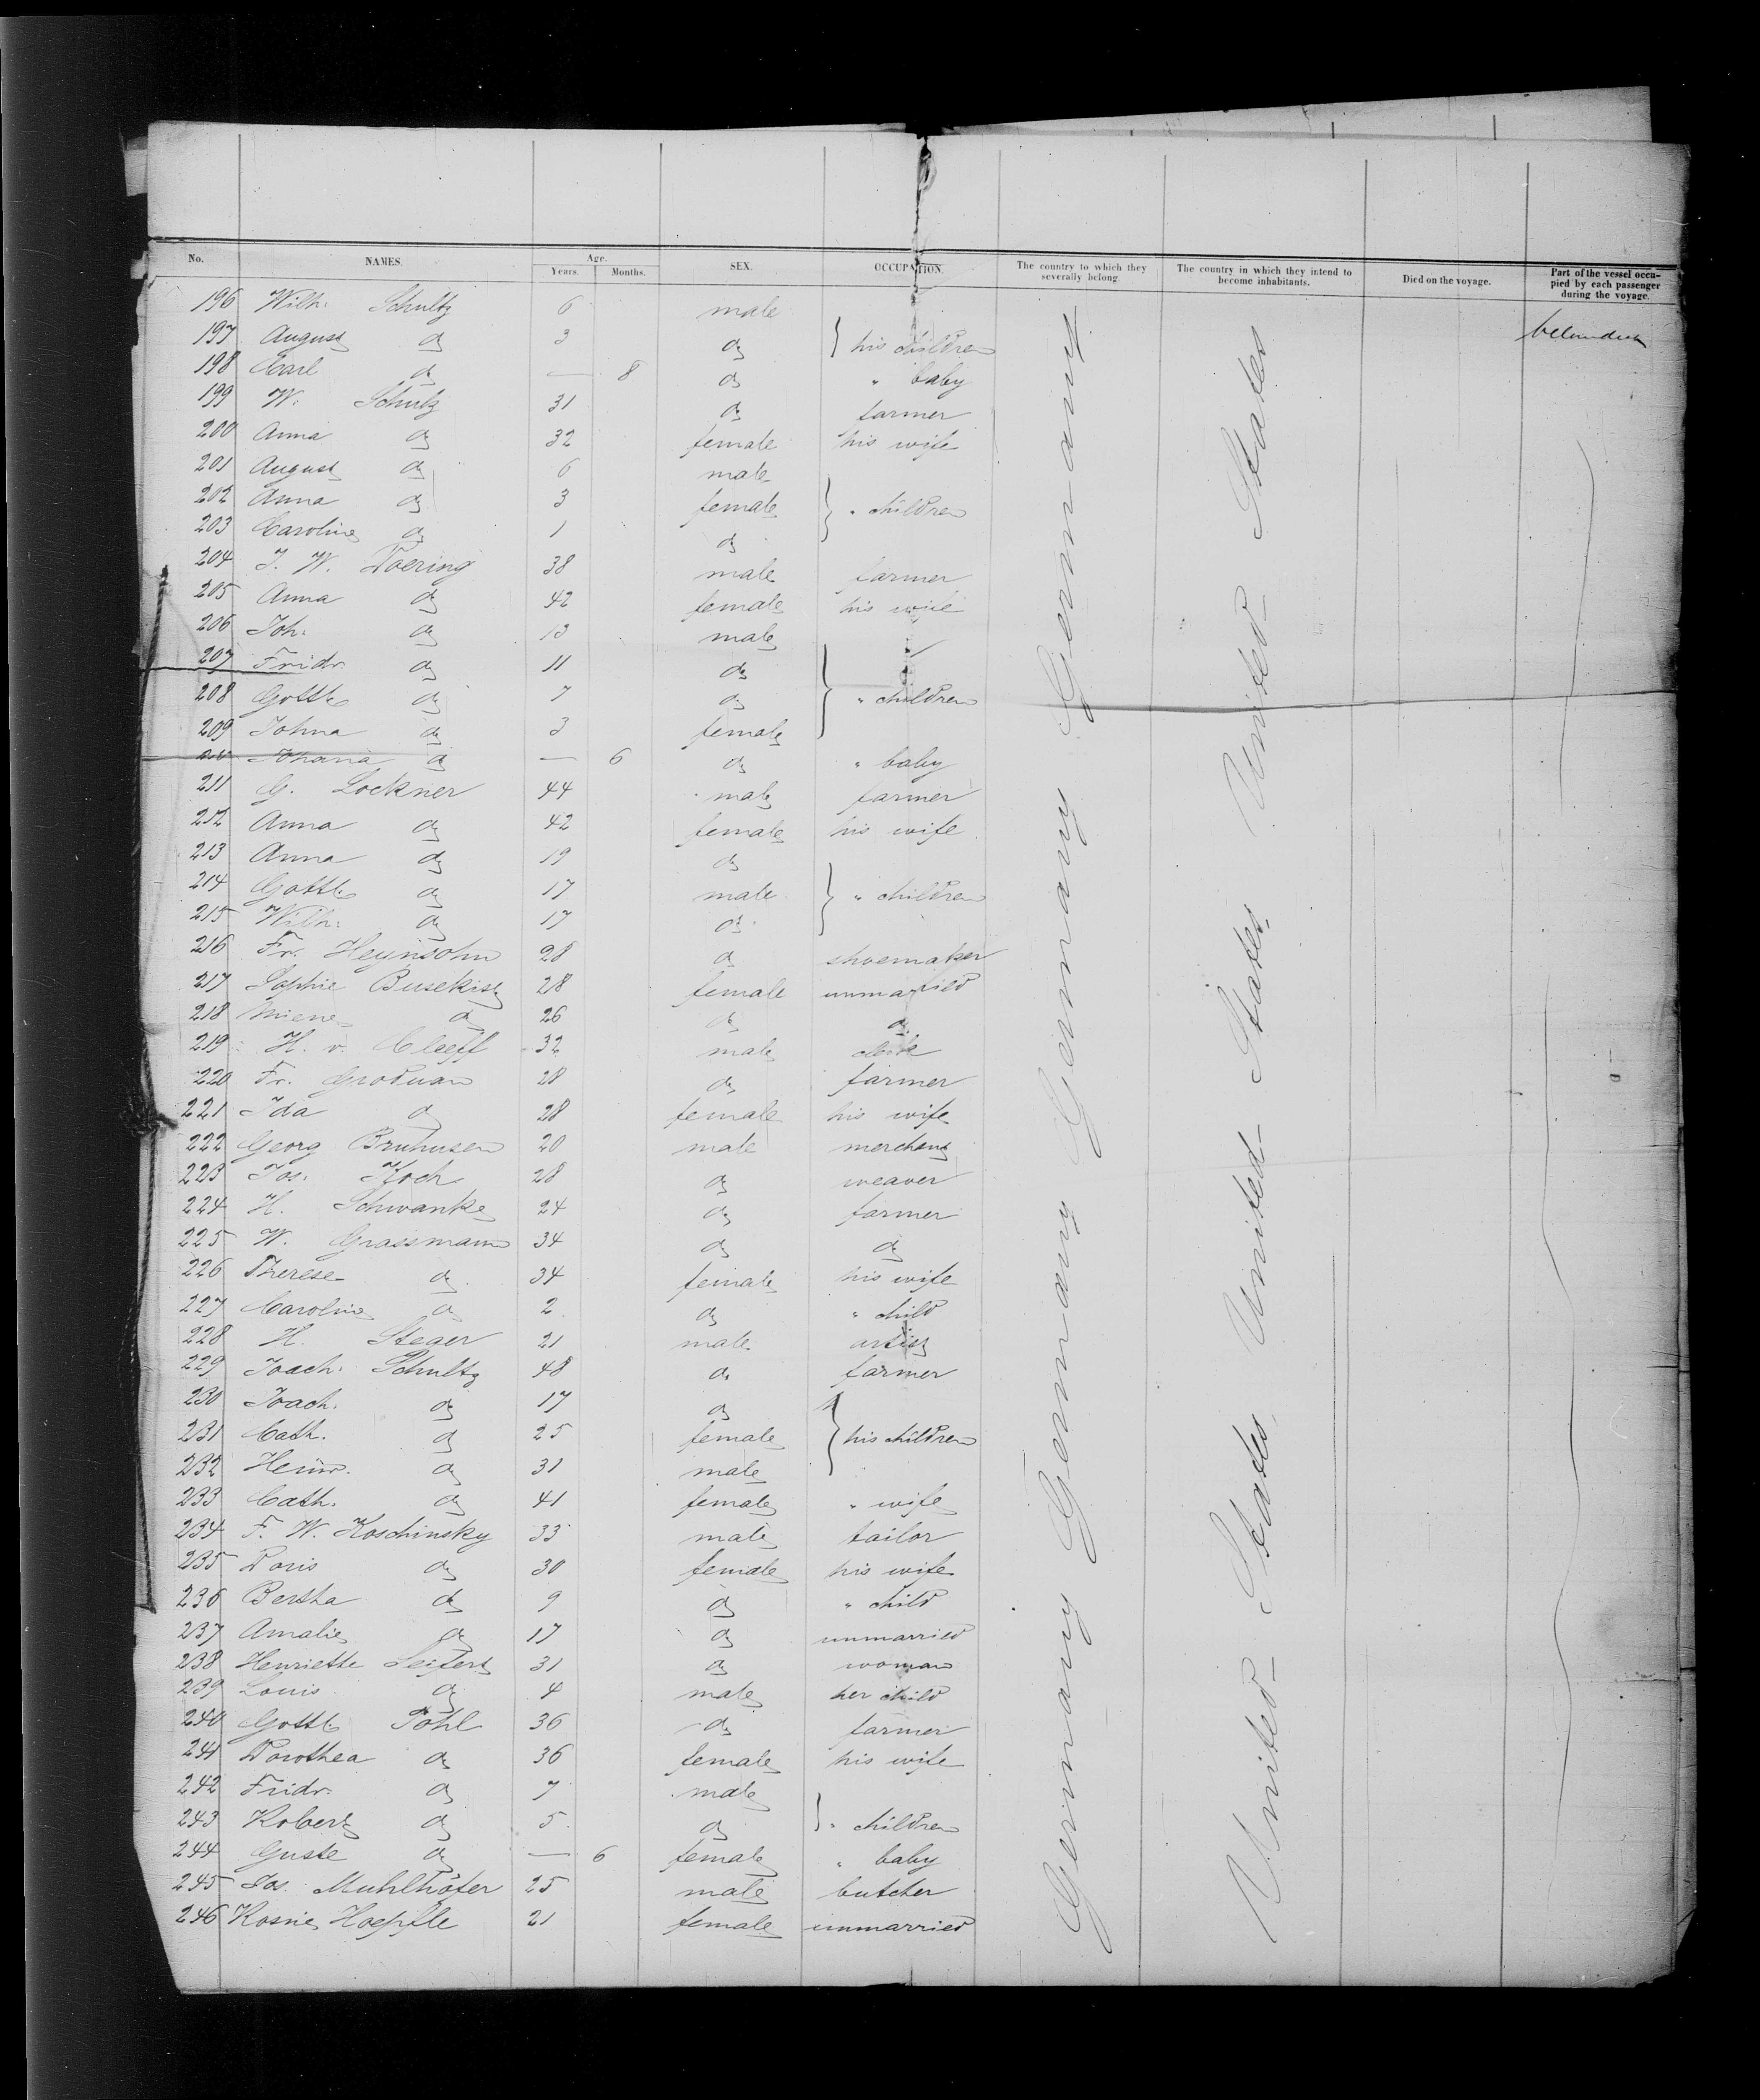 No. NAMES. Age. Years. Months. SEX. OCCUPATION. The country to which they severally belong. The country in which they intend to become inhabitants. Died on the voyage. Part of the vessel occupied by each passenger during the voyage.
196 Wilh. Schultz 6 male
197 August do 3 do } his children
198 Carl do — 8 do " baby
199 W. Schultz 31 do farmer
200 Anna do 32 female his wife
201 August do 6 male
202 Anna do 3 female } " children
203 Caroline do 1 do
204 J. W. Doering 38 male farmer
205 Anna do 42 female his wife
206 Joh. do 13 male
207 Fridr. do 11 do
208 Gottl. do 7 do } " children
209 Johna do 3 female
210 Johana do — 6 do " baby
211 G. Lockner 44 male farmer
212 Anna do 42 female his wife
213 Anna do 19 do
214 Gottl. do 17 male } " children
215 Wilh. do 17 do
216 Fr. Heynsohn 28 do shoemaker
217 Sophie Busekist 28 female unmarried
218 Miene do 26 do do
219 H. v. Cleeff 32 male
220 Fr. Groduan 28 do farmer
221 Ida do 28 female his wife
222 Georg Bruhusen 20 male merchant
223 Jos. Koch 28 do weaver
224 H. Schwanke 24 do farmer
225 W. Grassmann 34 do do
226 Therese do 34 female his wife
227 Caroline do 2 do " child
228 H. Steger 21 male artist
229 Joach. Schultz 48 do farmer
230 Joach. do 17 do
231 Cath. do 25 female } his children
232 Heinr. do 31 male
233 Cath. do 41 female " wife
234 F. W. Koschinsky 33 male tailor
235 Doris do 30 female his wife
236 Bertha do 9 do " child
237 Amalie do 17 do unmarried
238 Henriette Seifert 31 do woman
239 Louis do 4 male her child
240 Gottl. Pohl 36 do farmer
241 Dorothea do 36 female his wife
242 Fridr. do 7 male
243 Robert do 5 do } " children
244 Guste do — 6 female " baby
245 Jos. Muhlhöfer 25 male butcher
246 Rosine Hoepfle 21 female unmarried
Germany Germany Germany Germany Germany
United States United States United States United States